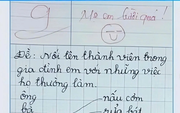 9
Đề: Nối tên thành viên trong
gia đình em với những việc
họ thường làm.
ông
nấu cơm
bà
rửa bát